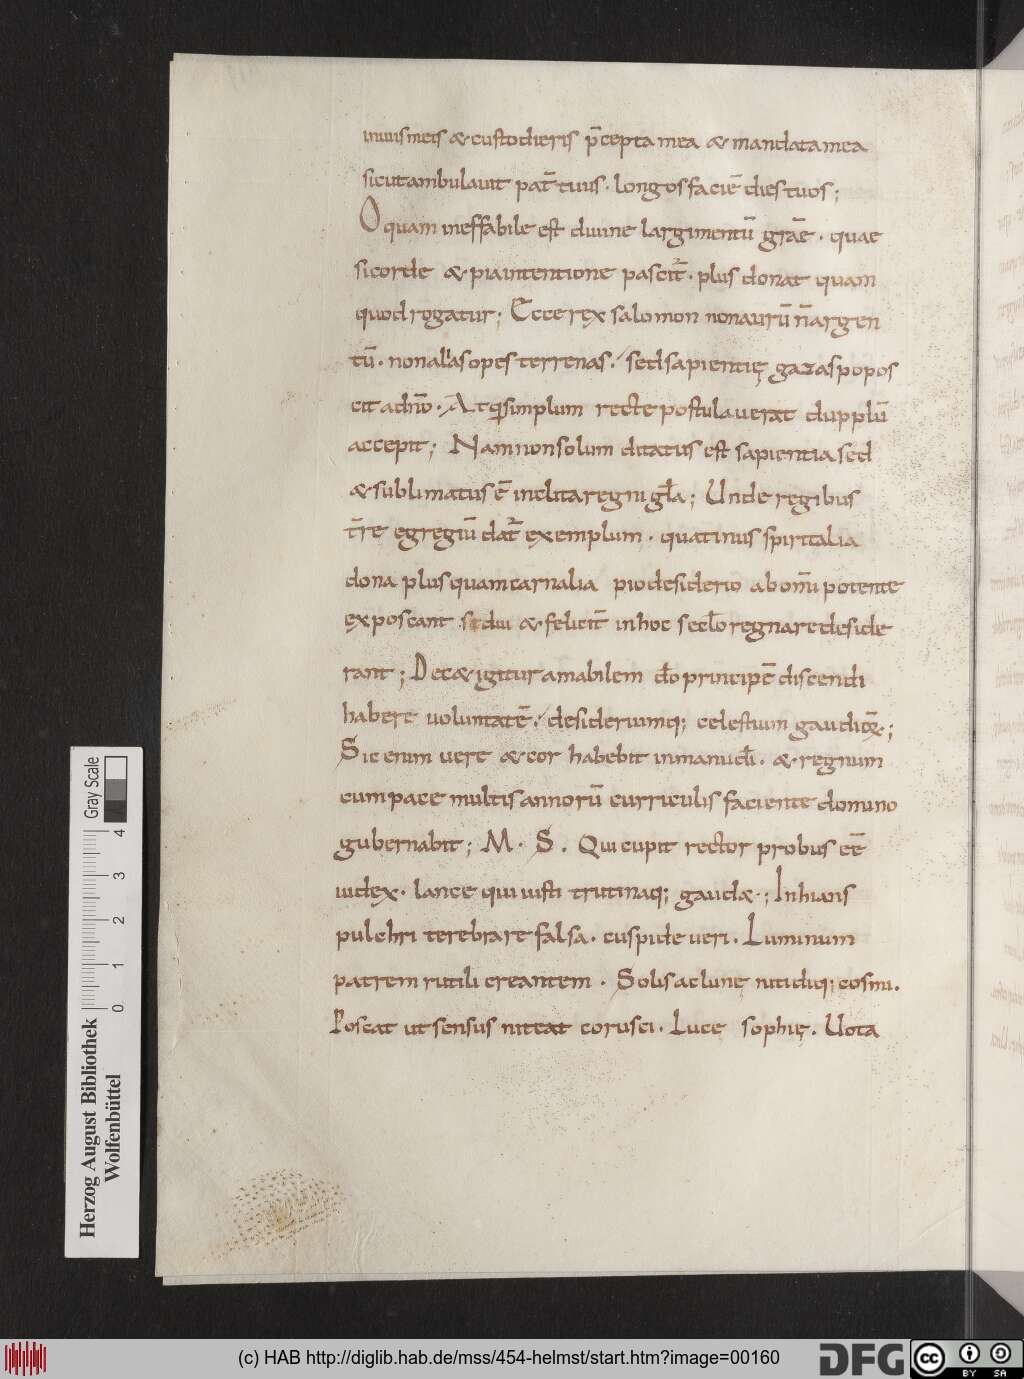 inuiis meis & custodieris p̄cepta mea & mandata mea
sicut ambulauit pat̄ tuus · longos faciē dies tuos ;
O quam ineffabile est diuine largimentū grāe · quae
si corde & pia intentione poscit᷑ · plus donat quam
quod rogatur ; Ecce rex salomon non aurū n̄ argen
tū · non allas opes terrenas · sed sapientię gazas popos
cit a dn̄o · Atq; simplum recte postulauerat dupplū
accepit ; Nam non solum ditatus est sapientia sed
& sublimatus ē inclita regni gl̄a ; Unde regibus
t̄re egregiū dat᷑ exemplum · quatinus spiritalia
dona plus quam carnalia pio desiderio ab om̄i potente
exposcant si diu & felicit̄ in hoc secl̄o regnare deside
rant ; Dec& igitur amabilem d̄o principē discendi
habere voluntatē · desideriumq; celestium gaudiō⁊ · ;
Sic enim uere & cor habebit in manu d̄i · & regnum
cum pace multis annorū curriculis faciente domino
gubernabit ; M · S · Qui cupit rector probus eē
iudex · lance qui iusti trutinaq; gaud& · ; Inhians
pulchri terebrare falsa · cuspide ueri · Luminum
patrem rutili creantem · Solis ac lunę nitidiq; cosmi ·
Poscat ut sensus niteat corusci · Luce sophię · Uota
Gray Scale
4
3
2
1
0
Herzog August Bibliothek
Wolfenbüttel
(c) HAB http://diglib.hab.de/mss/454-helmst/start.htm?image=00160
DFG
cc BY SA